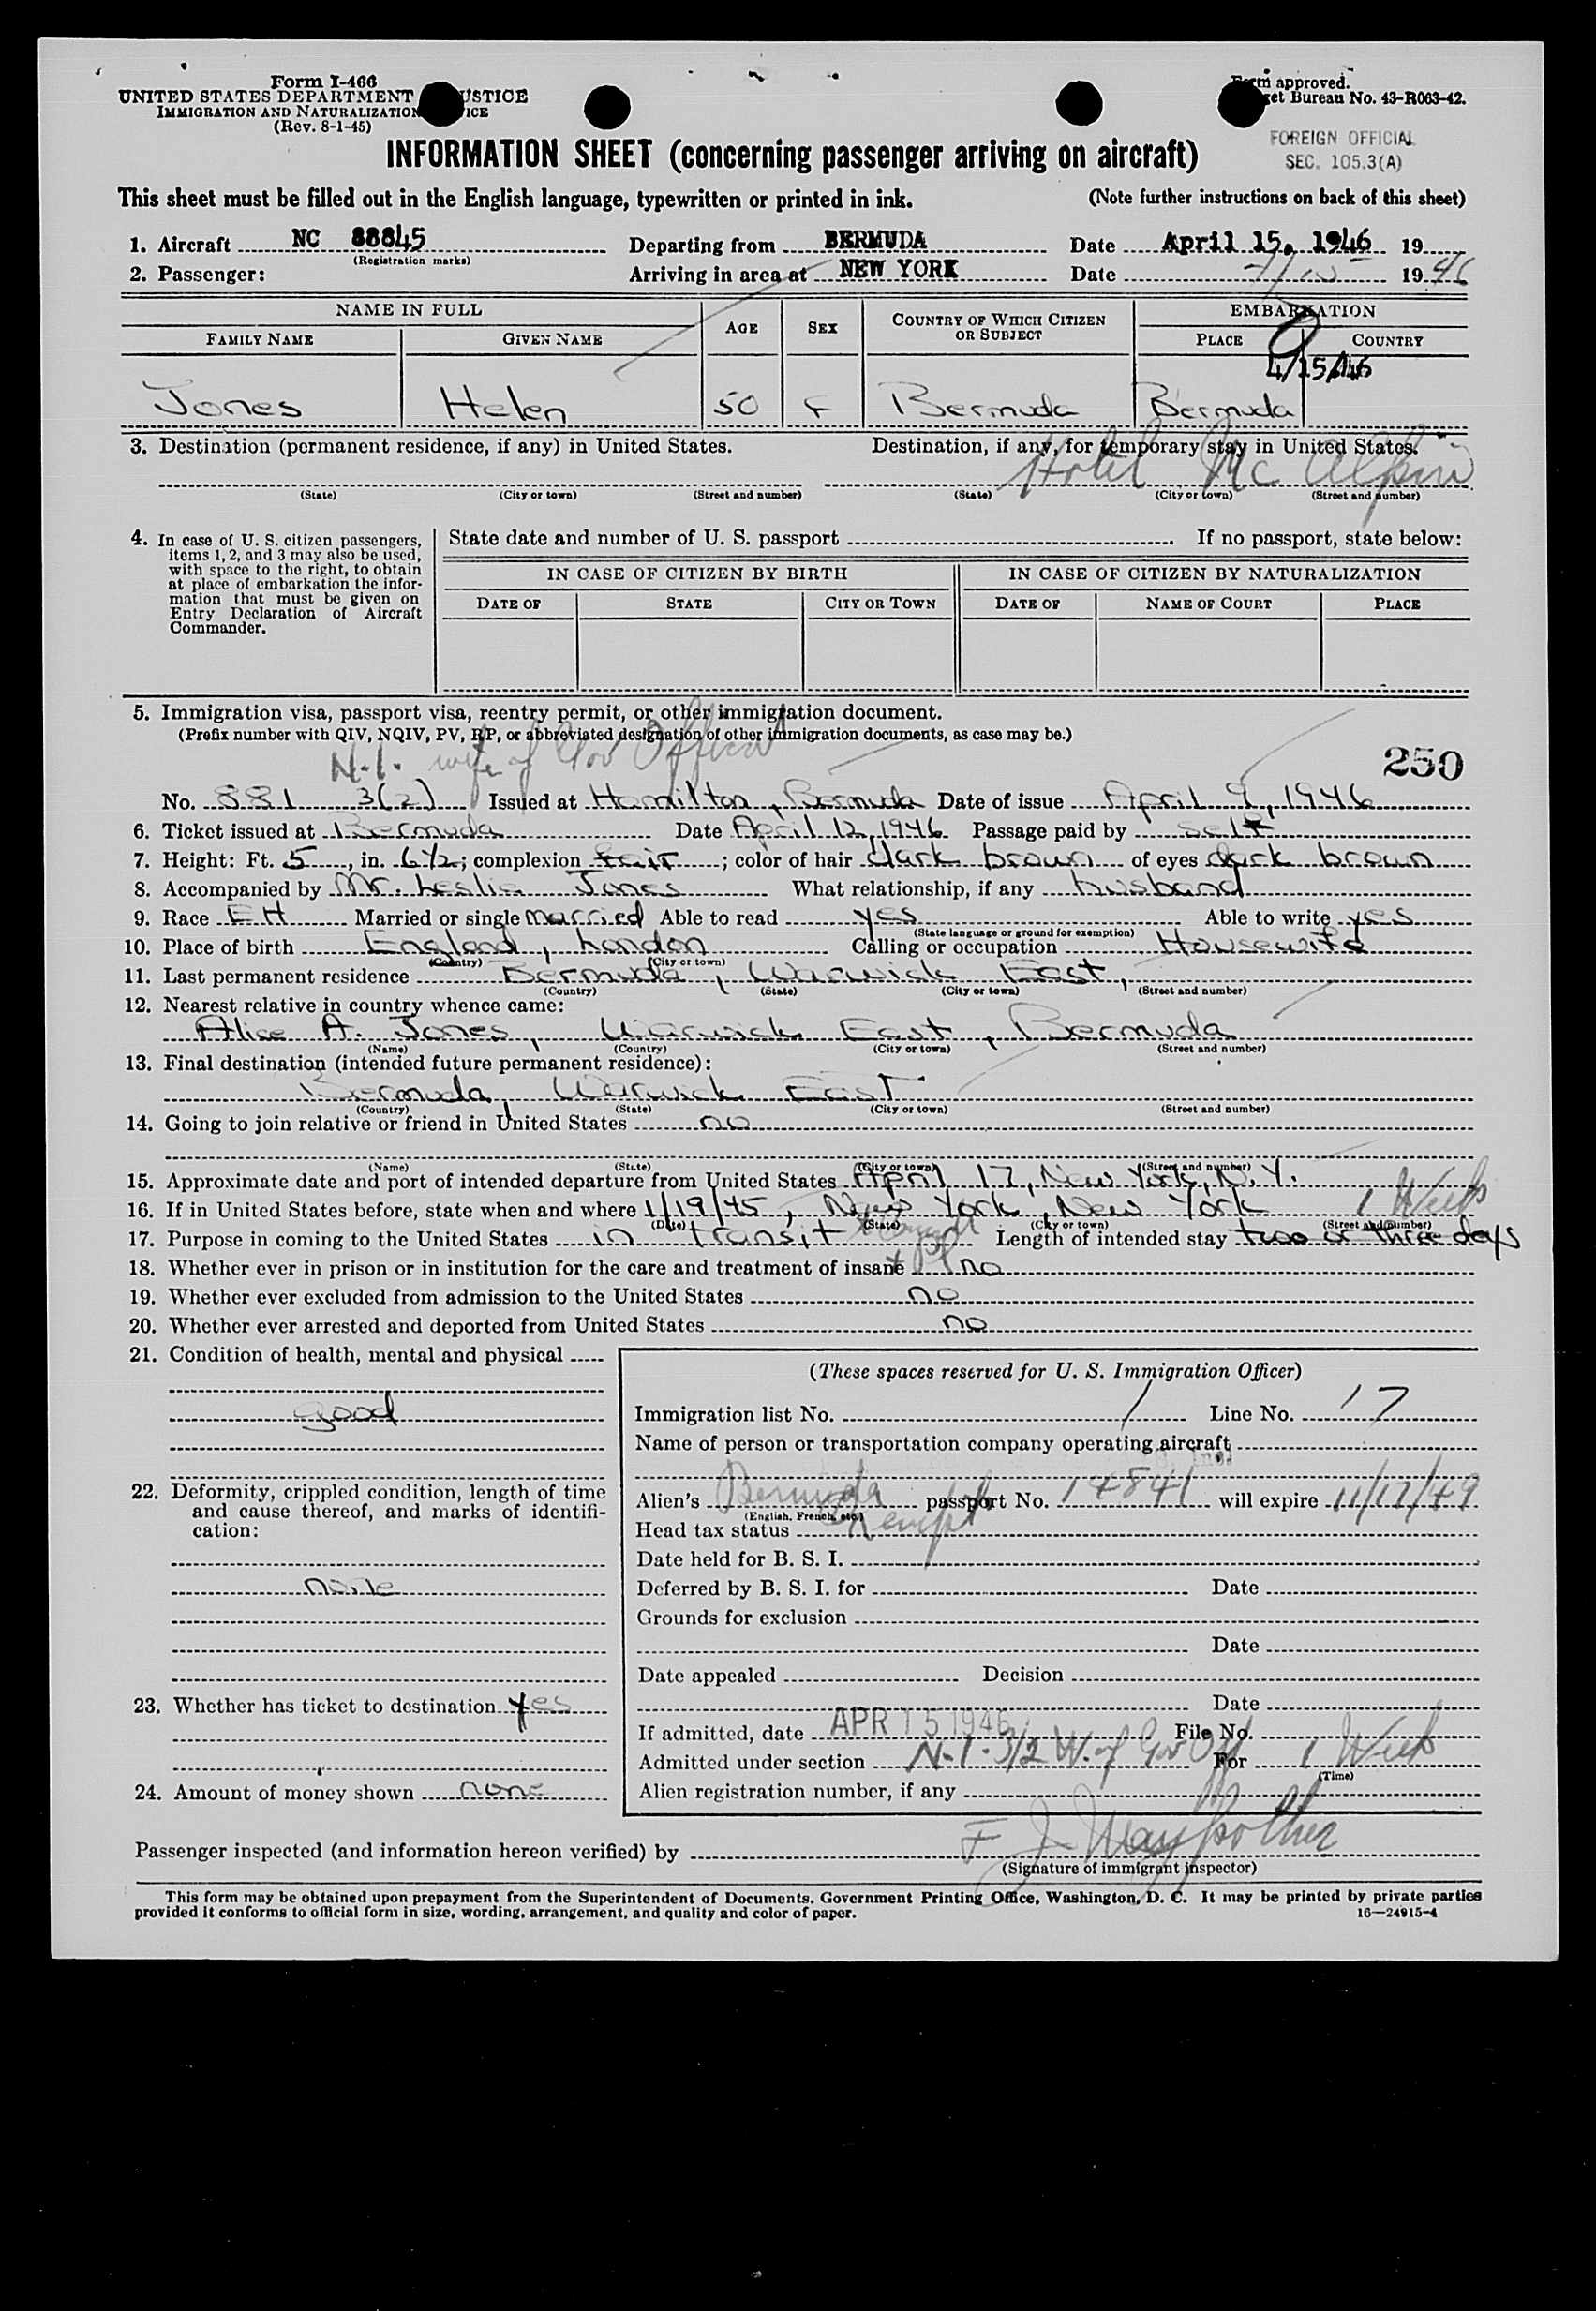 Form I-466
UNITED STATES DEPARTMENT USTICE
IMMIGRATION AND NATURALIZATION ICE
(Rev. 8-1-45)
approved.
et Bureau No. 43-R063-42.
FOREIGN OFFICIAL
SEC. 105.3(A)
INFORMATION SHEET (concerning passenger arriving on aircraft)
This sheet must be filled out in the English language, typewritten or printed in ink. (Note further instructions on back of this sheet)
1. Aircraft NC 88845 Departing from BERMUDA Date April 15, 1946 19
(Registration marks)
2. Passenger: Arriving in area at NEW YORK Date 4/15 1946
NAME IN FULL AGE SEX COUNTRY OF WHICH CITIZEN OR SUBJECT EMBARKATION
FAMILY NAME GIVEN NAME PLACE COUNTRY
4/15/46
Jones Helen 50 F Bermuda Bermuda
3. Destination (permanent residence, if any) in United States. Destination, if any, for temporary stay in United States.
Hotel Mc Alpin
(State) (City or town) (Street and number) (State) (City or town) (Street and number)
4. In case of U. S. citizen passengers, items 1, 2, and 3 may also be used, with space to the right, to obtain at place of embarkation the information that must be given on Entry Declaration of Aircraft Commander.
State date and number of U. S. passport If no passport, state below:
IN CASE OF CITIZEN BY BIRTH IN CASE OF CITIZEN BY NATURALIZATION
DATE OF STATE CITY OR TOWN DATE OF NAME OF COURT PLACE
5. Immigration visa, passport visa, reentry permit, or other immigration document.
(Prefix number with QIV, NQIV, PV, RP, or abbreviated designation of other immigration documents, as case may be.)
N.I. wife of Gov Official
250
No. 881 3(2) Issued at Hamilton, Bermuda Date of issue April 9, 1946
6. Ticket issued at Bermuda Date April 12, 1946 Passage paid by self
7. Height: Ft. 5, in. 6½; complexion fair; color of hair dark brown of eyes dark brown
8. Accompanied by Mr. Leslie Jones What relationship, if any husband
9. Race EH Married or single married Able to read yes Able to write yes
(State language or ground for exemption)
10. Place of birth England, London Calling or occupation Housewife
(Country) (City or town)
11. Last permanent residence Bermuda, Warwick East,
(Country) (State) (City or town) (Street and number)
12. Nearest relative in country whence came:
Alice A. Jones, Warwick East, Bermuda
(Name) (Country) (City or town) (Street and number)
13. Final destination (intended future permanent residence):
Bermuda, Warwick East
(Country) (State) (City or town) (Street and number)
14. Going to join relative or friend in United States no
(Name) (State) (City or town) (Street and number)
15. Approximate date and port of intended departure from United States April 17, New York, N.Y.
16. If in United States before, state when and where 1/19/45, New York, New York
(Date) (State) (City or town) (Street and number)
1 Week
17. Purpose in coming to the United States in transit Length of intended stay two or three days
18. Whether ever in prison or in institution for the care and treatment of insane no
19. Whether ever excluded from admission to the United States no
20. Whether ever arrested and deported from United States no
21. Condition of health, mental and physical
good
22. Deformity, crippled condition, length of time and cause thereof, and marks of identification:
none
23. Whether has ticket to destination yes
24. Amount of money shown none
(These spaces reserved for U. S. Immigration Officer)
Immigration list No. 1 Line No. 17
Name of person or transportation company operating aircraft
Alien's Bermuda passport No. 14841 will expire 11/17/49
(English, French, etc.)
Head tax status Exempt
Date held for B. S. I.
Deferred by B. S. I. for Date
Grounds for exclusion
Date
Date appealed Decision
Date
If admitted, date APR 15 1946 File No.
Admitted under section N-I-3/2 W. of Gov Off For 1 Week
(Time)
Alien registration number, if any
Passenger inspected (and information hereon verified) by F J
(Signature of immigrant inspector)
This form may be obtained upon prepayment from the Superintendent of Documents, Government Printing Office, Washington, D. C. It may be printed by private parties
provided it conforms to official form in size, wording, arrangement, and quality and color of paper. 16—24915-4